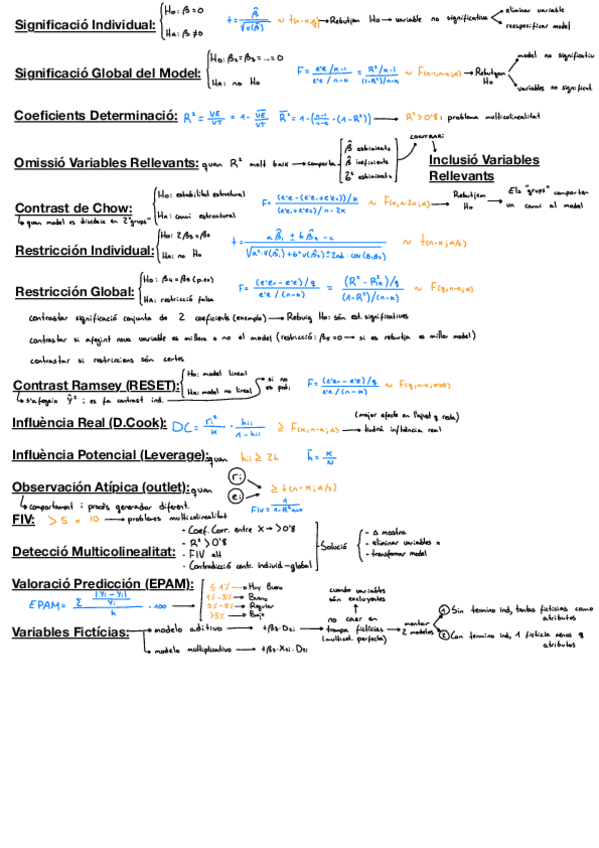 Significació Individual: H₀: β = 0 t = β̂ / √v(β̂) ~ t(n-k; α) → Rebutjem H₀ → variable no significativa → eliminar variable
Hₐ: β ≠ 0 → reespecificar model
Significació Global del Model: H₀: β₂ = β₃ = ... = 0 F = (e'e / k-1) / (e'e / n-k) = (R² / k-1) / ((1-R²) / n-k) ~ F(k-1, n-k; α) → Rebutgem H₀ → model no significatiu
Hₐ: no H₀ → variables no signifient
Coeficients Determinació: R² = VE / VT = 1 - VE / VT R̄² = 1 - (n-1 / n-k · (1-R²)) → R² > 0'8: problema multicolinealitat
Omissió Variables Rellevants: quan R² molt baix → comporta β̂ esbiaixats
β̂ ineficients
σ̂² esbiaixats
CONTRARI:
Inclusió Variables
Rellevants
Contrast de Chow: H₀: estabilitat estructural F = (e'e - (e'e₁ + e'e₂)) / k / (e'e₁ + e'e₂) / n - 2k ~ F(k, n-2k; α) → Rebutjem H₀ → Els "grups" comporten
un canvi al model
↳ quan model es divideix en 2 "grups" Hₐ: canvi estructural
Restricción Individual: H₀: 2β₂ = β₃ t = a β̂₁ ± b β̂₂ - c / √a²·v(β̂₁) + b²v(β̂₂) ± 2ab · cov(β₁β₂) ~ t(n-k; α/2)
Hₐ: no H₀
Restricción Global: H₀: β₄ = β₃ (p.ex) F = (e'eᵣ - e'e) / q / e'e / (n-k) = (R² - R²ᵣ) / q / (1-R²) / (n-k) ~ F(q, n-k; α)
Hₐ: restricció falsa
contrastar significació conjunta de 2 coeficients (exemple) → Rebuig H₀: són est. significatives
contrastar si afegint nova variable es millora o no al model (restricció: βₓ = 0 → si es rebutja es millor model)
contrastar si restriccions són certes
Contrast Ramsey (RESET): H₀: model lineal → si no es pot: F = (e'eᵣ - e'e) / q / e'e / (n-k) ~ F(q, n-k; α)
↳ s'afegeix Ŷ²: es fa contrast ind. Hₐ: model no lineal
Influència Real (D.Cook): DC = rᵢ² / k · hᵢᵢ / 1-hᵢᵢ ≥ F(k, n-k; α) → (major efecte en l'ajust q resta)
tindrà influència real
Influència Potencial (Leverage): quan hᵢᵢ ≥ 2h̄ h̄ = k / N
Observación Atípica (outlet): quan rᵢ eᵢ ≥ t(n-k; α/2)
↳ comportament i procés generador diferent.
FIV = 1 / 1-R² aux
FIV: > 5 o 10 → problemes multicolinealitat
Detecció Multicolinealitat: - Coef. Corr. entre X → > 0'8
- R² > 0'8
- FIV alt
- Contradicció contr. individ-global
Solució
- Δ mostra
- eliminar variables x
- transformar model
Valoració Predicción (EPAM):
EPAM = Σ |Yᵢ - Ŷᵢ| / Yᵢ / h · 100 → ≤ 1% → Muy Bueno
1% - 3% → Bueno
3% - 5% → Regular
> 5% → Bajo
Variables Fictícies: → modelo aditivo → + β₃ · Dₜᵢ
→ modelo multiplicativo → + β₃ · Xₜᵢ · Dₜᵢ
cuando variables
són excluyentes
no caer en
trampa ficticias
(multicol. perfecta)
montar
2 modelos
① Sin termino ind, tantas ficticias como
atributos
② Con termino ind, 1 ficticia menos q
atributos